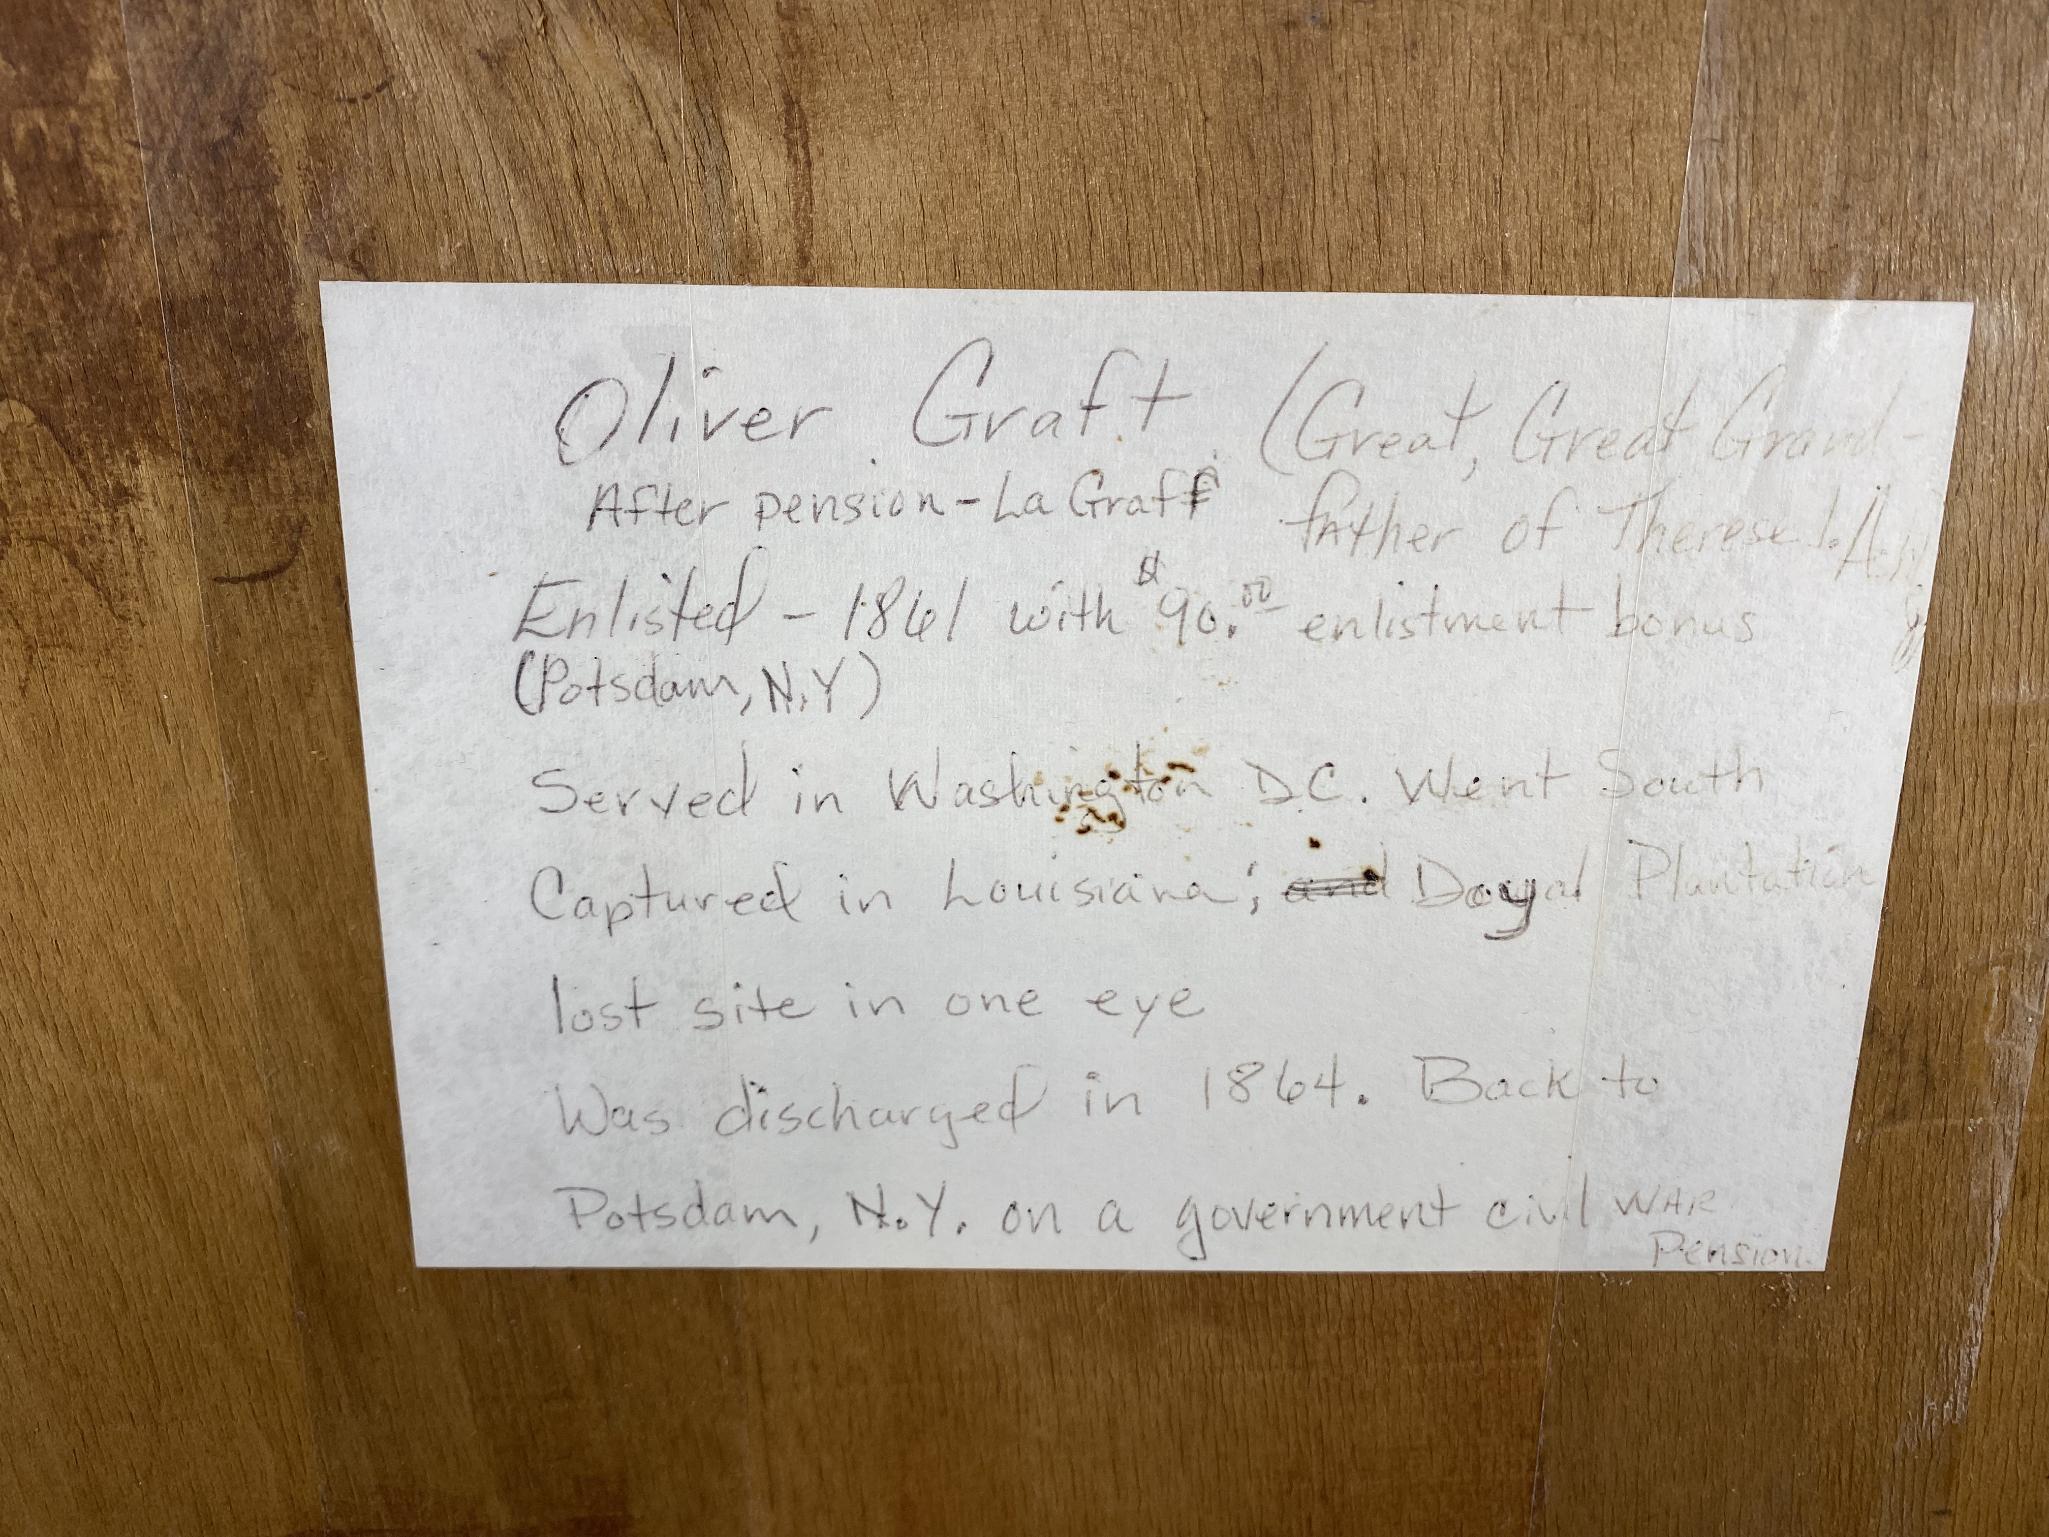 Oliver Graft (Great, Great Grand-
After pension - La Graff father of Therese
Enlisted - 1861 with $90.00 enlistment bonus
(Potsdam, N.Y)
Served in Washington D.C. Went South
Captured in Louisiana; and Doyal Plantation
lost site in one eye
Was discharged in 1864. Back to
Potsdam, N.Y. on a government civil WAR
Pension.